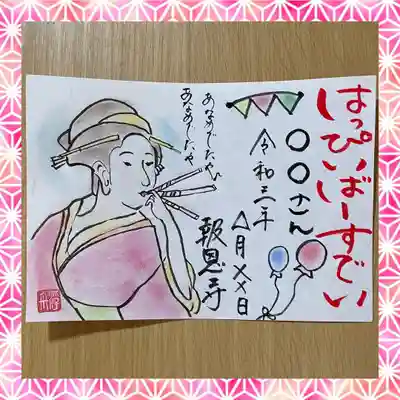 はっぴいばーすでい
〇〇さん
令和三年
△月××日
報恩寺
あなめでたや
あなめでたや